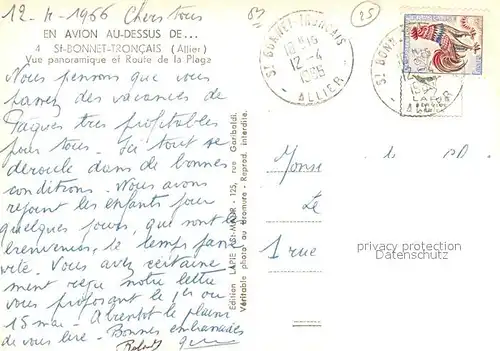 12-4-1966 Chers tous
EN AVION AU-DESSUS DE...
4 St-BONNET-TRONÇAIS (Allier)
Vue panoramique et Route de la Plage
Nous pensons que vous
passez des vacances de
Pâques très profitables
pour tous. Ici tout se
déroule dans de bonnes
conditions. Nous avons
rejoint les enfants pour
quelques jours, qui sont les
bienvenus, le temps passe
vite. Vous avez certaine
ment reçu notre lettre
vous proposant le 1er ou
15 mai - A bientôt le plaisir
de vous lire. Bonnes embrassades
Edition LAPIE St-MAUR - 125, rue Garibaldi.
Véritable photo au bromure - Reprod. interdite.
25
St BONNET-TRONÇAIS
12-4
ALLIER
St BONN
ALLIER
LAPIE
Mons
Le
1 rue
photographic property
protected